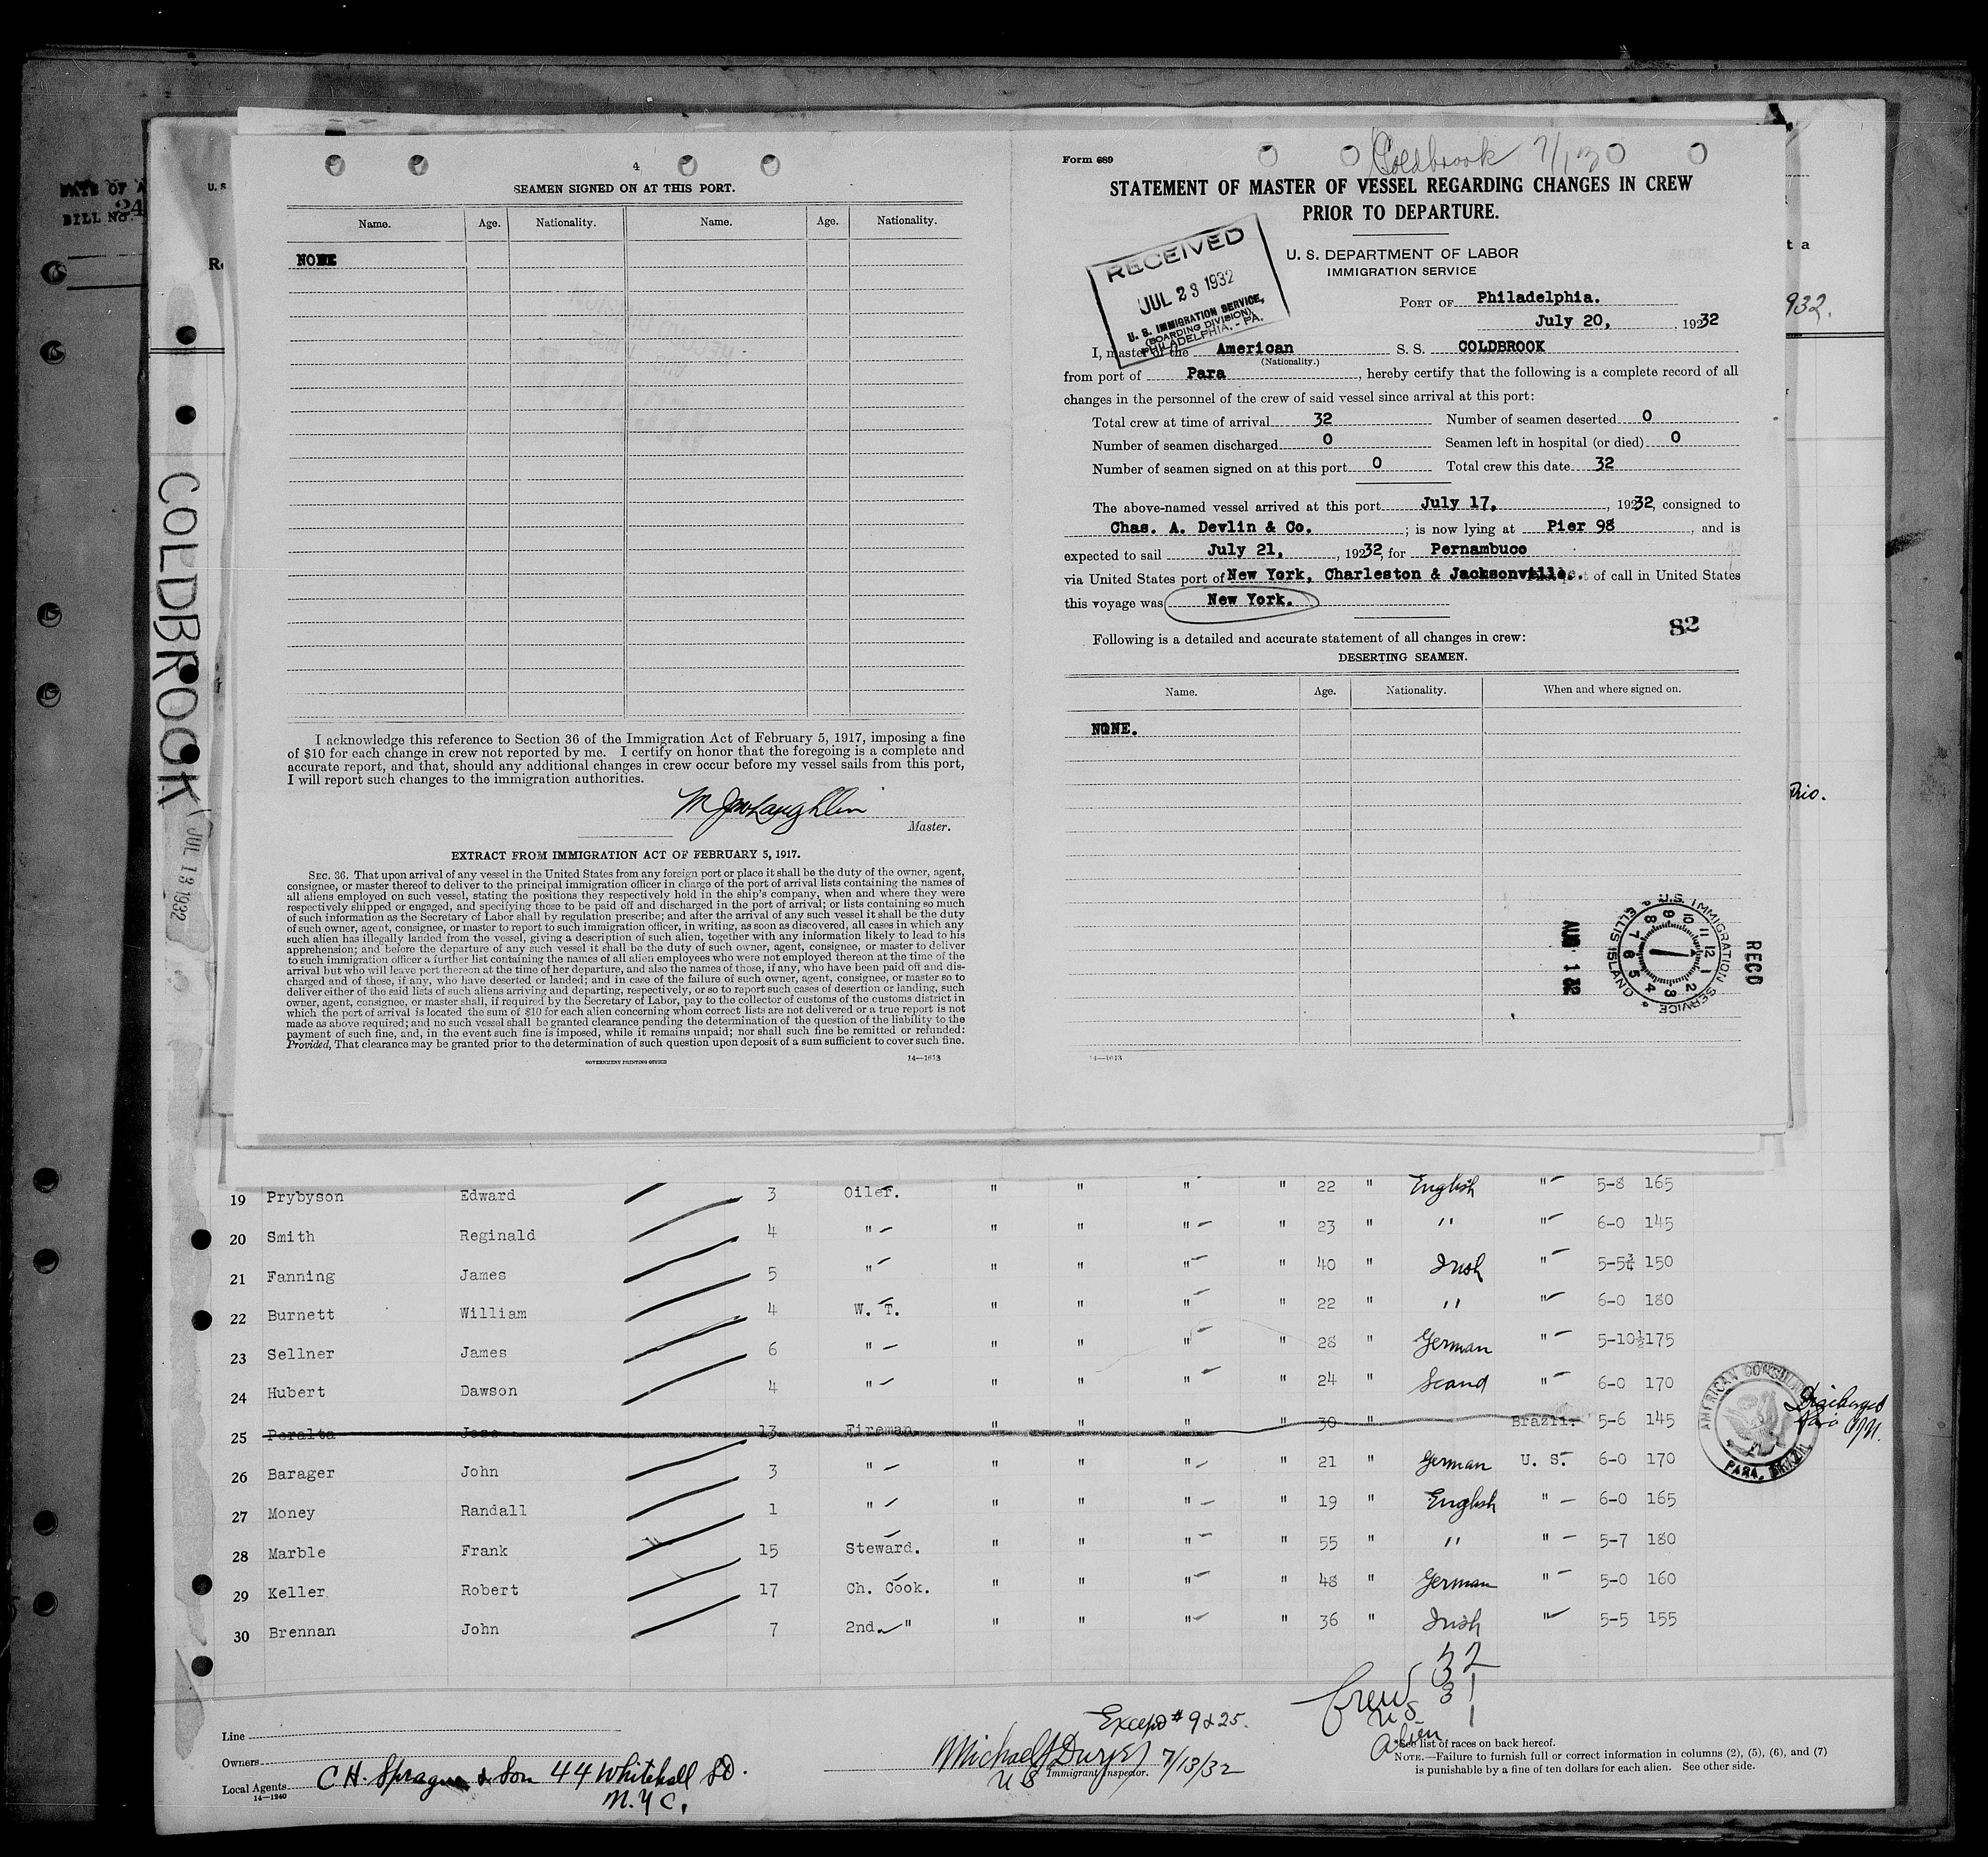 DATE OF A
BILL No. 24
U. S
R
COLDBROOK
JUL 13 1932
4
SEAMEN SIGNED ON AT THIS PORT.
Name. Age. Nationality. Name. Age. Nationality.
NONE
I acknowledge this reference to Section 36 of the Immigration Act of February 5, 1917, imposing a fine
of $10 for each change in crew not reported by me. I certify on honor that the foregoing is a complete and
accurate report, and that, should any additional changes in crew occur before my vessel sails from this port,
I will report such changes to the immigration authorities.
M J McLaughlin
Master.
EXTRACT FROM IMMIGRATION ACT OF FEBRUARY 5, 1917.
SEC. 36. That upon arrival of any vessel in the United States from any foreign port or place it shall be the duty of the owner, agent,
consignee, or master thereof to deliver to the principal immigration officer in charge of the port of arrival lists containing the names of
all aliens employed on such vessel, stating the positions they respectively hold in the ship's company, when and where they were
respectively shipped or engaged, and specifying those to be paid off and discharged in the port of arrival; or lists containing so much
of such information as the Secretary of Labor shall by regulation prescribe; and after the arrival of any such vessel it shall be the duty
of such owner, agent, consignee, or master to report to such immigration officer, in writing, as soon as discovered, all cases in which any
such alien has illegally landed from the vessel, giving a description of such alien, together with any information likely to lead to his
apprehension; and before the departure of any such vessel it shall be the duty of such owner, agent, consignee, or master to deliver
to such immigration officer a further list containing the names of all alien employees who were not employed thereon at the time of the
arrival but who will leave port thereon at the time of her departure, and also the names of those, if any, who have been paid off and dis-
charged and of those, if any, who have deserted or landed; and in case of the failure of such owner, agent, consignee, or master so to
deliver either of the said lists of such aliens arriving and departing, respectively, or so to report such cases of desertion or landing, such
owner, agent, consignee, or master shall, if required by the Secretary of Labor, pay to the collector of customs of the customs district in
which the port of arrival is located the sum of $10 for each alien concerning whom correct lists are not delivered or a true report is not
made as above required; and no such vessel shall be granted clearance pending the determination of the question of the liability to the
payment of such fine, and, in the event such fine is imposed, while it remains unpaid; nor shall such fine be remitted or refunded:
Provided, That clearance may be granted prior to the determination of such question upon deposit of a sum sufficient to cover such fine.
GOVERNMENT PRINTING OFFICE 14—1613
Form 689
Coldbrook 7/13
STATEMENT OF MASTER OF VESSEL REGARDING CHANGES IN CREW
PRIOR TO DEPARTURE.
RECEIVED
JUL 23 1932
U. S. IMMIGRATION SERVICE,
(BOARDING DIVISION)
PHILADELPHIA, - PA.
U. S. DEPARTMENT OF LABOR
IMMIGRATION SERVICE
PORT OF Philadelphia.
July 20, , 1932
I, master of the American S. S. COLDBROOK
(Nationality.)
from port of Para , hereby certify that the following is a complete record of all
changes in the personnel of the crew of said vessel since arrival at this port:
Total crew at time of arrival 32 Number of seamen deserted 0
Number of seamen discharged 0 Seamen left in hospital (or died) 0
Number of seamen signed on at this port 0 Total crew this date 32
The above-named vessel arrived at this port July 17, , 1932, consigned to
Chas. A. Devlin & Co. ; is now lying at Pier 98 , and is
expected to sail July 21, , 1932, for Pernambuco
via United States port of New York, Charleston & Jacksonville. of call in United States
this voyage was New York.
82
Following is a detailed and accurate statement of all changes in crew:
DESERTING SEAMEN.
Name. Age. Nationality. When and where signed on.
NONE.
AUG 1 32
U.S. IMMIGRATION SERVICE ELLIS ISLAND
12 1 2 3 4 5 6 7 8 9 10 11
RECD
14—1613
t a
932.
Rio.
19 Prybyson Edward 3 Oiler. " " " " 22 " English " 5-8 165
20 Smith Reginald 4 " " " " " 23 " " " 6-0 145
21 Fanning James 5 " " " " " 40 " Irish " 5-5¾ 150
22 Burnett William 4 W. T. " " " " 22 " " " 6-0 180
23 Sellner James 6 " " " " " 28 " German " 5-10½ 175
24 Hubert Dawson 4 " " " " " 24 " Scand " 6-0 170
25 Peralta Jose 13 Fireman " " " " 30 " Brazil. 5-6 145
26 Barager John 3 " " " " " 21 " German U. S. 6-0 170
27 Money Randall 1 " " " " " 19 " English " 6-0 165
28 Marble Frank 15 Steward. " " " " 55 " " " 5-7 180
29 Keller Robert 17 Ch. Cook. " " " " 48 " German " 5-0 160
30 Brennan John 7 2nd " " " " " 36 " Irish " 5-5 155
AMERICAN CONSULATE
PARA, BRAZIL
Discharged
Crew 32
US 31
Alien 1
Except # 9 & 25.
Line
Owners
Local Agents C H. Sprague & Son 44 Whitehall St.
N. Y C.
14—1240
7/13/32
U S Immigrant Inspector.
See list of races on back hereof.
NOTE.—Failure to furnish full or correct information in columns (2), (5), (6), and (7)
is punishable by a fine of ten dollars for each alien. See other side.